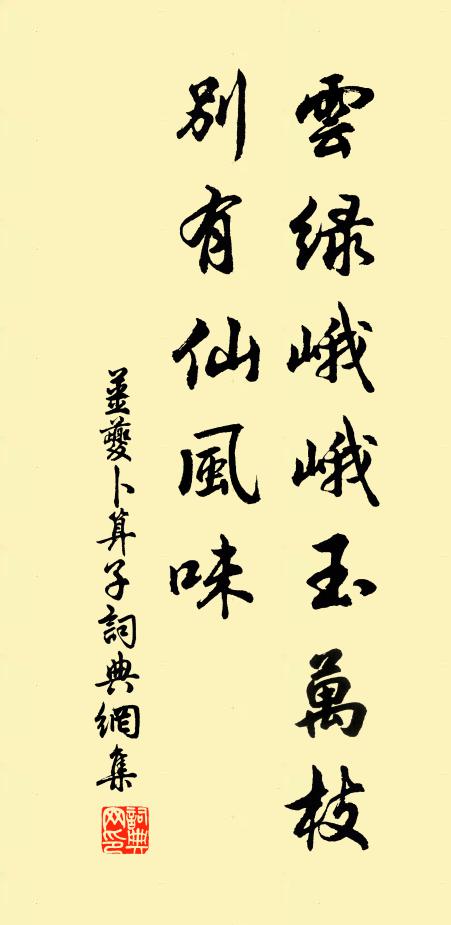 雲綠峨峨玉萬枝
別有仙風味
薑夔卜算子詞典網集
詞典
网印